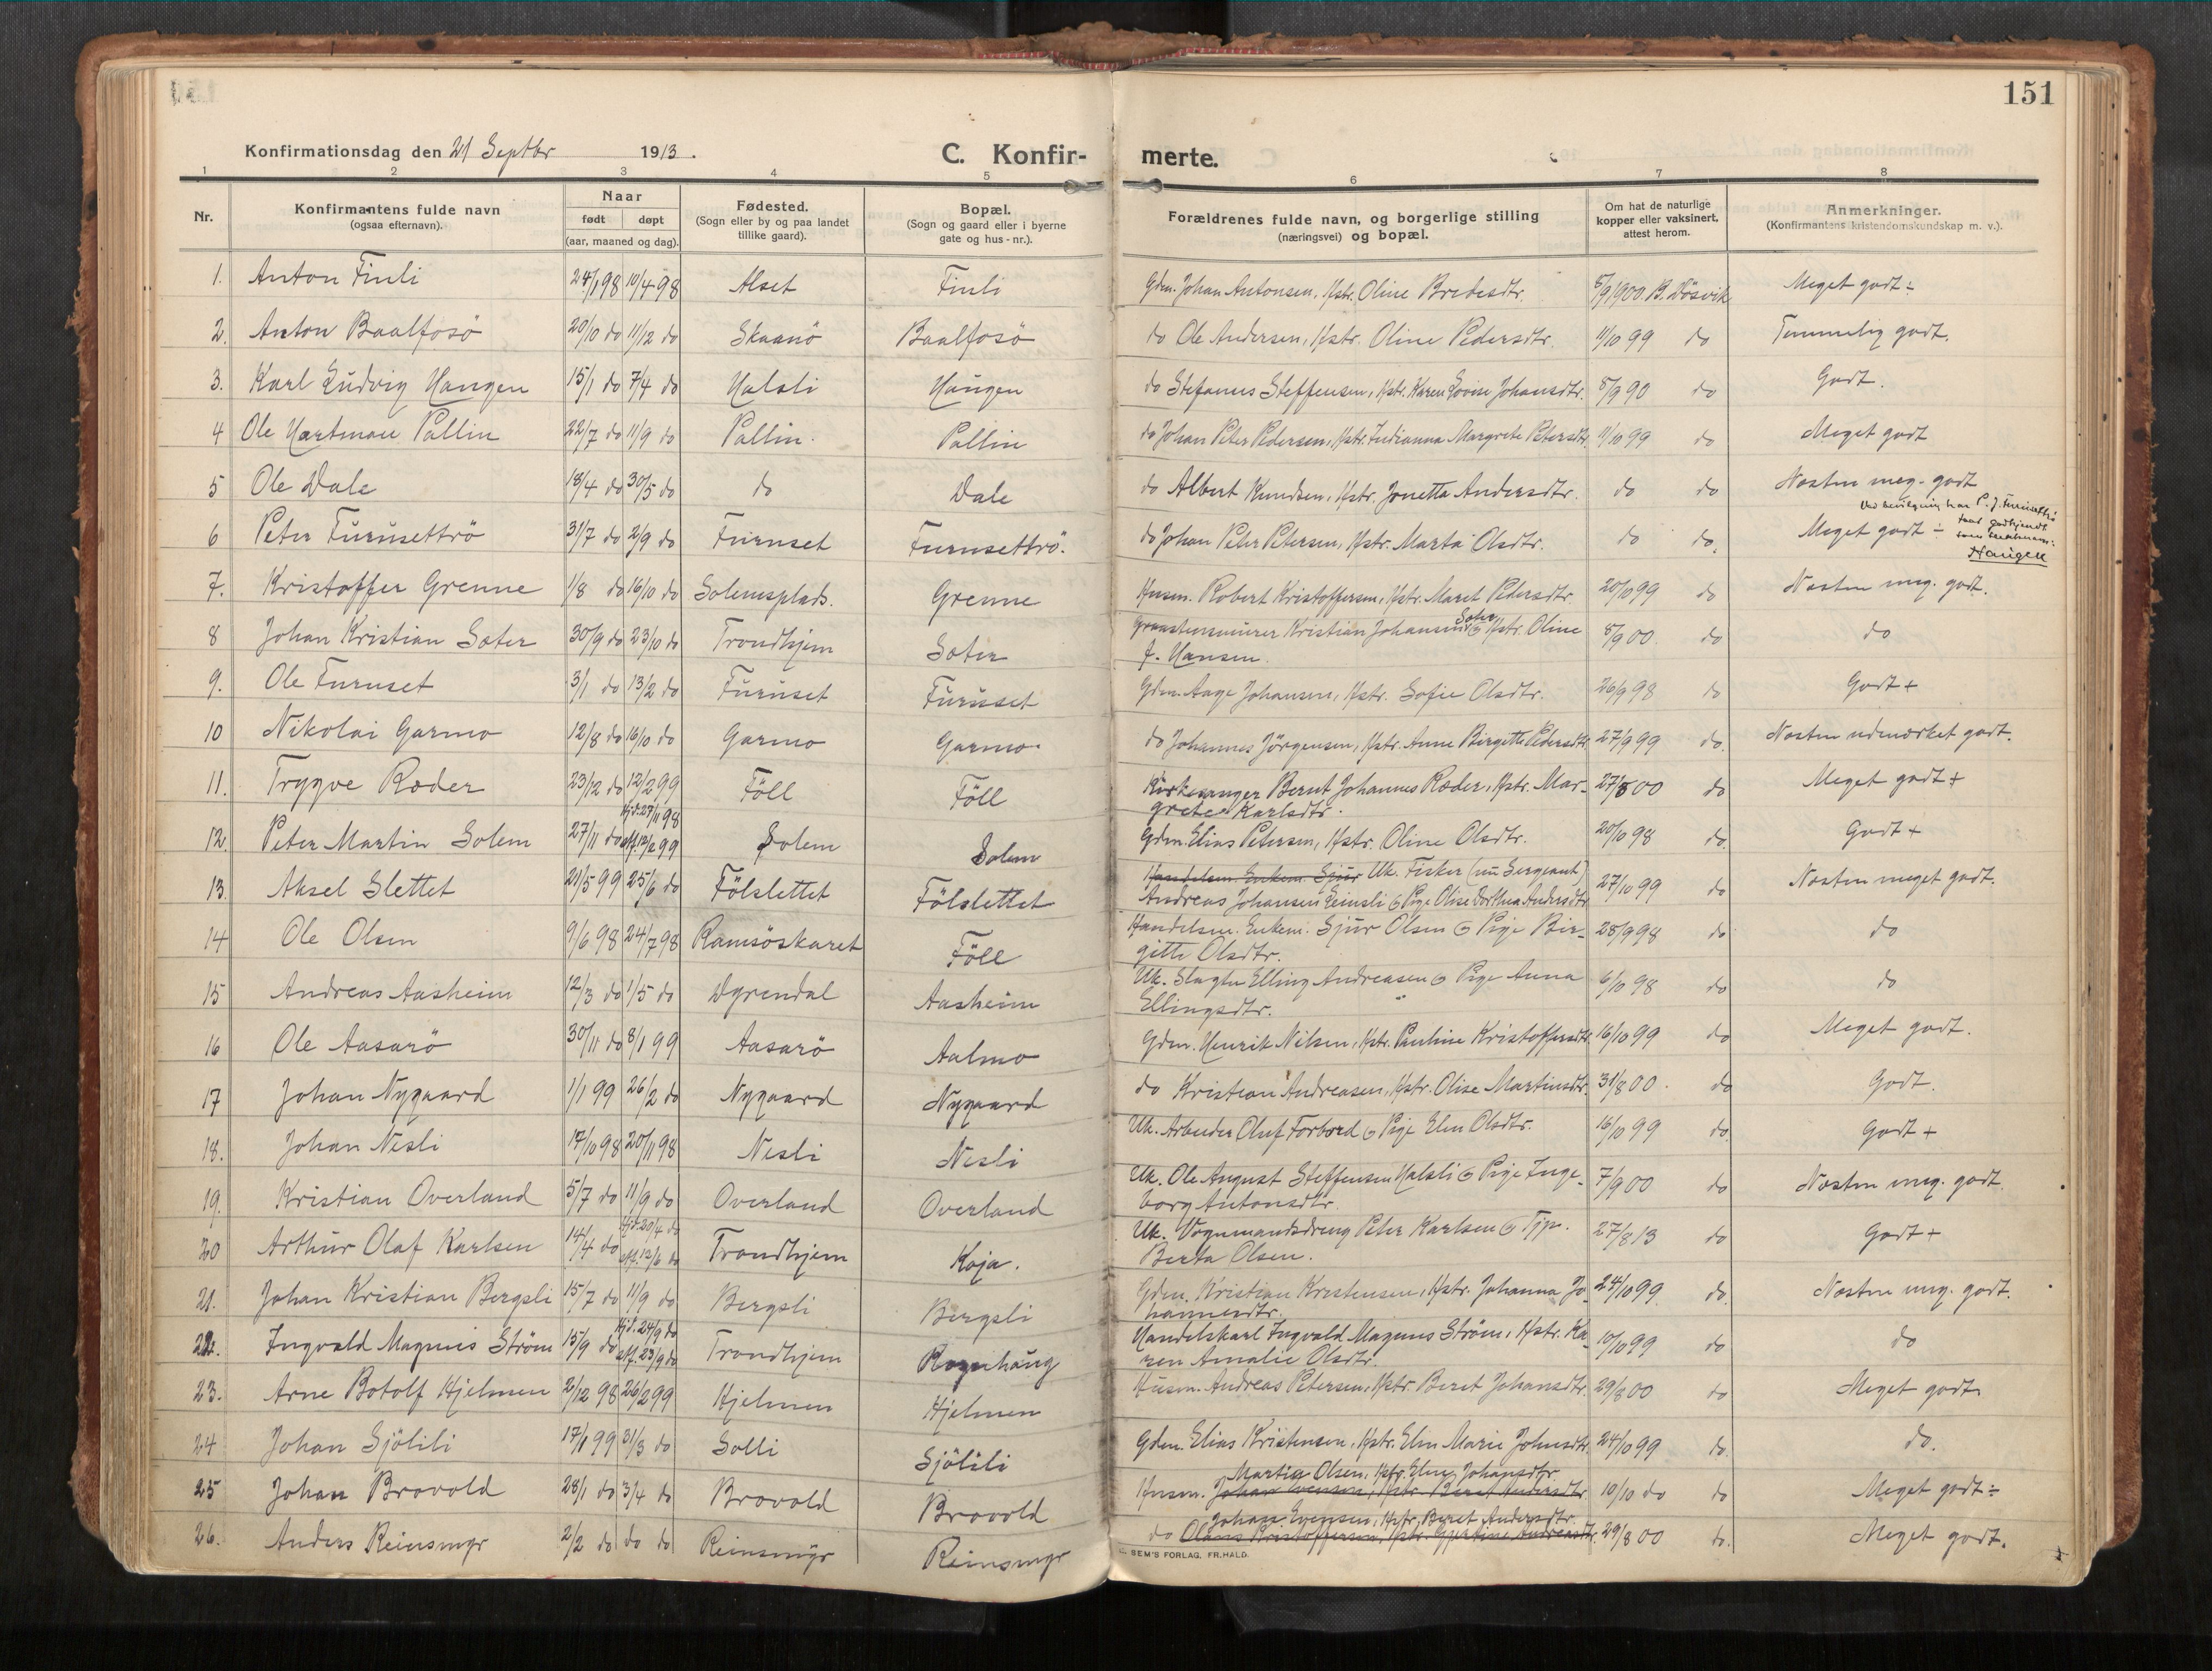 151
Konfirmationsdag den 21 Septbr 1913.
C. Konfir- merte.
1 2 3 4 5 6 7 8
Nr.
Konfirmantens fulde navn
(ogsaa efternavn).
Naar
født døpt
(aar, maaned og dag).
Fødested.
(Sogn eller by og paa landet
tillike gaard).
Bopæl.
(Sogn og gaard eller i byerne
gate og hus-nr.).
Forældrenes fulde navn, og borgerlige stilling
(næringsvei) og bopæl.
Om hat de naturlige
kopper eller vaksinert,
attest herom.
Anmerkninger.
(Konfirmantens kristendomskundskap m. v.).
1. Anton Finli 24/1 98 10/4 98 Alset Finli Gdm. Johan Antonsen, Hstr. Oline Bredesdtr. 5/9 1900. B. Dösvik Meget godt ÷
2. Anton Baalfosö 20/10 do 11/12 do Skaanö Baalfosö do Ole Andersen, Hstr. Oline Pedersdtr. 11/10 99 do Temmelig godt.
3. Karl Ludvig Haugen 15/1 do 7/4 do Halsli Haugen do Stefanus Steffensen, Hstr. Karen Lovise Johansdtr. 5/9 90 do Godt.
4 Ole Hartman Pallin 22/7 do 11/9 do Pallin. Pallin do Johan Peter Pedersen, Hstr. Indianna Margrete Petersdtr. 11/10 99 do Meget godt
5 Ole Dale 18/4 do 30/5 do do Dale do Albert Knudsen, Hstr. Jonetta Andersdtr. do do Næsten meg. godt
6 Peter Furusettrö 31/7 do 2/9 do Furuset Furusettrö. do Johan Peter Petersen, Hstr. Marta Olsdtr. do do. Meget godt ÷
Haugen
7. Kristoffer Grenne 1/8 do 16/10 do Solemsplads. Grenne Husm. Robert Kristoffersen, Hstr. Maret Pedersdtr. 20/10 99 do Næsten meg. godt.
8 Johan Kristian Sæter 30/9 do 23/10 do Trondhjem Sæter Graastensmurer Kristian Johansen Sæter & Hstr. Oline 5/9 00 do do
f. Hansen.
9. Ole Furuset 3/1 do 13/2 do Furuset Furuset Gdm. Aage Johansen, Hstr. Sofie Olsdtr. 26/9 98 do Godt +
10 Nikolai Garmo 12/8 do 16/10 do Garmo Garmo. do Johannes Jörgensen, Hstr. Anne Birgitte Pedersdtr. 27/9 99 do. Næsten udmærket godt.
11. Trygve Ræder 23/12 do 12/2 99 Föll Föll Kirkesanger Bernt Johannes Ræder, Hstr. Mar- 27/8 00 do Meget godt +
grete Karlsdtr.
12. Peter Martin Solem 27/11 do Hjd. 27/11 98 stf. 12/2 99 Solem Solem Gdm. Elias Petersen, Hstr. Oline Olsdtr. 20/10 98 do. Godt +
13. Aksel Slettet 21/5 99 25/6 do Fölslettet Fölslettet Handelsm. Enkem. Sjur Uk. Fisker (nu Sergeant) 27/10 99 do Næsten meget godt.
Andreas Johansen Reinsli & Pige Olise Dorthea Andersdtr
14 Ole Olsen 9/6 98 24/7 98 Ramsöskaret Föll Handelsm. Enkem. Sjur Olsen & Pige Bir- 28/9 98 do do
gitte Olsdtr.
15 Andreas Aasheim 12/3 do 1/5 do Dyrendal Aasheim Uk. Slagter Elling Andreasen & Pige Anna 6/10 98 do do
Ellingsdtr.
16 Ole Aasarö 30/11 do 8/1 99 Aasarö Aalmo Gdm. Henrik Nilsen, Hstr. Pauline Kristoffersdtr. 16/10 99 do Meget godt.
17 Johan Nygaard 1/1 99 26/2 do Nygaard Nygaard do Kristian Andreasen, Hstr. Olise Martinsdtr. 31/8 00. do Godt.
18. Johan Nesli 17/10 98 20/11 98 Nesli Nesli Uk. Arbeider Oluf Forbord & Pige Elen Olsdtr. 16/10 99 do Godt +
19. Kristian Overland 5/7 do 11/9 do Overland Overland Uk. Ole August Steffensen Halsli & Pige Inge- 7/9 00 do Næsten meg. godt.
borg Antonsdtr.
20 Arthur Olaf Karlsen 14/4 do Hjd. 20/4 do stf. 12/6 do Trondhjem Koja. Uk. Vognmandsdreng Peter Karlsen & Tjp. 27/8 13 do Godt +
Berta Olsen.
21. Johan Kristian Bergsli 15/7 do 11/9 do Bergsli Bergsli Gdm. Kristian Kristensen, Hstr. Johanna Jo- 24/10 99 do. Næsten meg. godt.
hannesdtr.
22. Ingvald Magnus Ström 15/9 do Hjd. 24/9 do stf. 23/9 do Trondhjem Rognhaug Handelskarl Ingvald Magnus Ström, Hstr. Ka- 10/10 99 do do
ren Amalie Olsdtr.
23. Arne Botolf Hjelmen 2/12 98 26/2 99 Hjelmen Hjelmen Husm. Andreas Petersen, Hstr. Beret Johansdtr. 29/8 00 do Meget godt
24 Johan Sjölili 17/1 99 31/3 do Solli Sjölili Gdm. Elias Kristensen, Hstr. Elen Marie Johnsdtr. 24/10 99 do. do.
Martin Olsen, Hstr. Elen Johansdtr.
25 Johan Brovold 28/1 do 3/4 do Brovold Brovold Husm. Johan Evensen, Hstr. Beret Andersdtr 10/10 do do Meget godt ÷
Johan Evensen, Hstr. Beret Andersdtr.
26. Anders Reinsmyr 2/2 do do do Reinsmyr Reinsmyr do Olaus Kristoffersen, Hstr. Gjertine Andreasdtr. 29/8 00 do. Meget godt.
SEM'S FORLAG, FR.HALD.